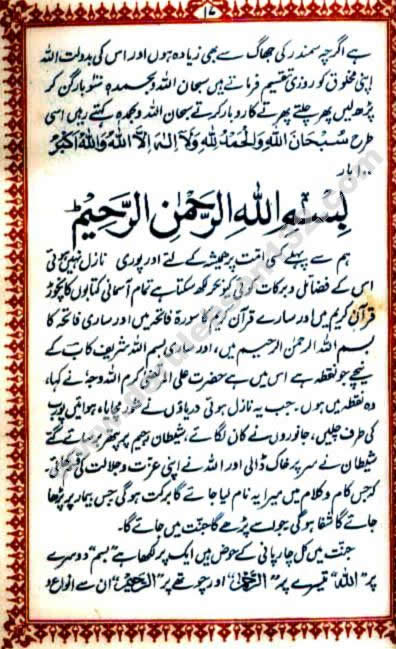 ۱۷
ہے اگرچہ سمندر کی جھاگ سے بھی زیادہ ہوں اور اس کی بدولت اللہ
اپنی مخلوق کو روزی تقسیم فرماتے ہیں سبحان اللہ وبحمدہٖ سو بار گن کر
پڑھ لیں پھر چلتے پھرتے کاروبار کرتے سبحان اللہ وبحمدہ کہتے رہیں اسی
طرح سُبْحَانَ اللهِ وَالْحَمْدُ لِلّٰهِ وَلَآ اِلٰهَ اِلَّا اللهُ وَاللهُ اَكْبَرُ
۱۰۰ بار
بِسْمِ اللهِ الرَّحْمٰنِ الرَّحِيْمِ ط
ہم سے پہلے کسی امت پر ہمیشہ کے لئے اور پوری نازل نہیں ہوئی
اس کے فضائل و برکات کوئی کیونکر لکھ سکتا ہے تمام آسمانی کتابوں کا نچوڑ
قرآن کریم میں اور سارے قرآن کریم کا سورۃ فاتحہ میں اور ساری فاتحہ کا
بسم اللہ الرحمٰن الرحیم میں، اور ساری بسم اللہ شریف کا ب کے
نیچے جو نقطہ ہے اس میں ہے حضرت علی المرتضیٰ کرم اللہ وجہہ نے کہا،
وہ نقطہ میں ہوں۔ جب یہ نازل ہوئی دریاؤں نے شور مچایا، ہوائیں پورب
کی طرف چلیں، جانوروں نے کان لگائے، شیطان رجیم پر پتھر برسائے گئے
شیطان نے سر پر خاک ڈالی اور اللہ نے اپنی عزت و جلالت کی قسم کھائی
کہ جس کام و کلام میں میرا یہ نام لیا جائے گا برکت ہوگی جس بیمار پر پڑھا
جائے گا شفا ہوگی جو اسے پڑھے گا جنت میں جائے گا۔
جنت میں کل چار پانی کے حوض ہیں ایک پر لکھا ہے ”بسم“ دوسرے
پر ”اللہ“ تیسرے پر ”الرَّحْمٰن“ اور چوتھے پر ”الرَّحِيْم“ ان سے انواع و